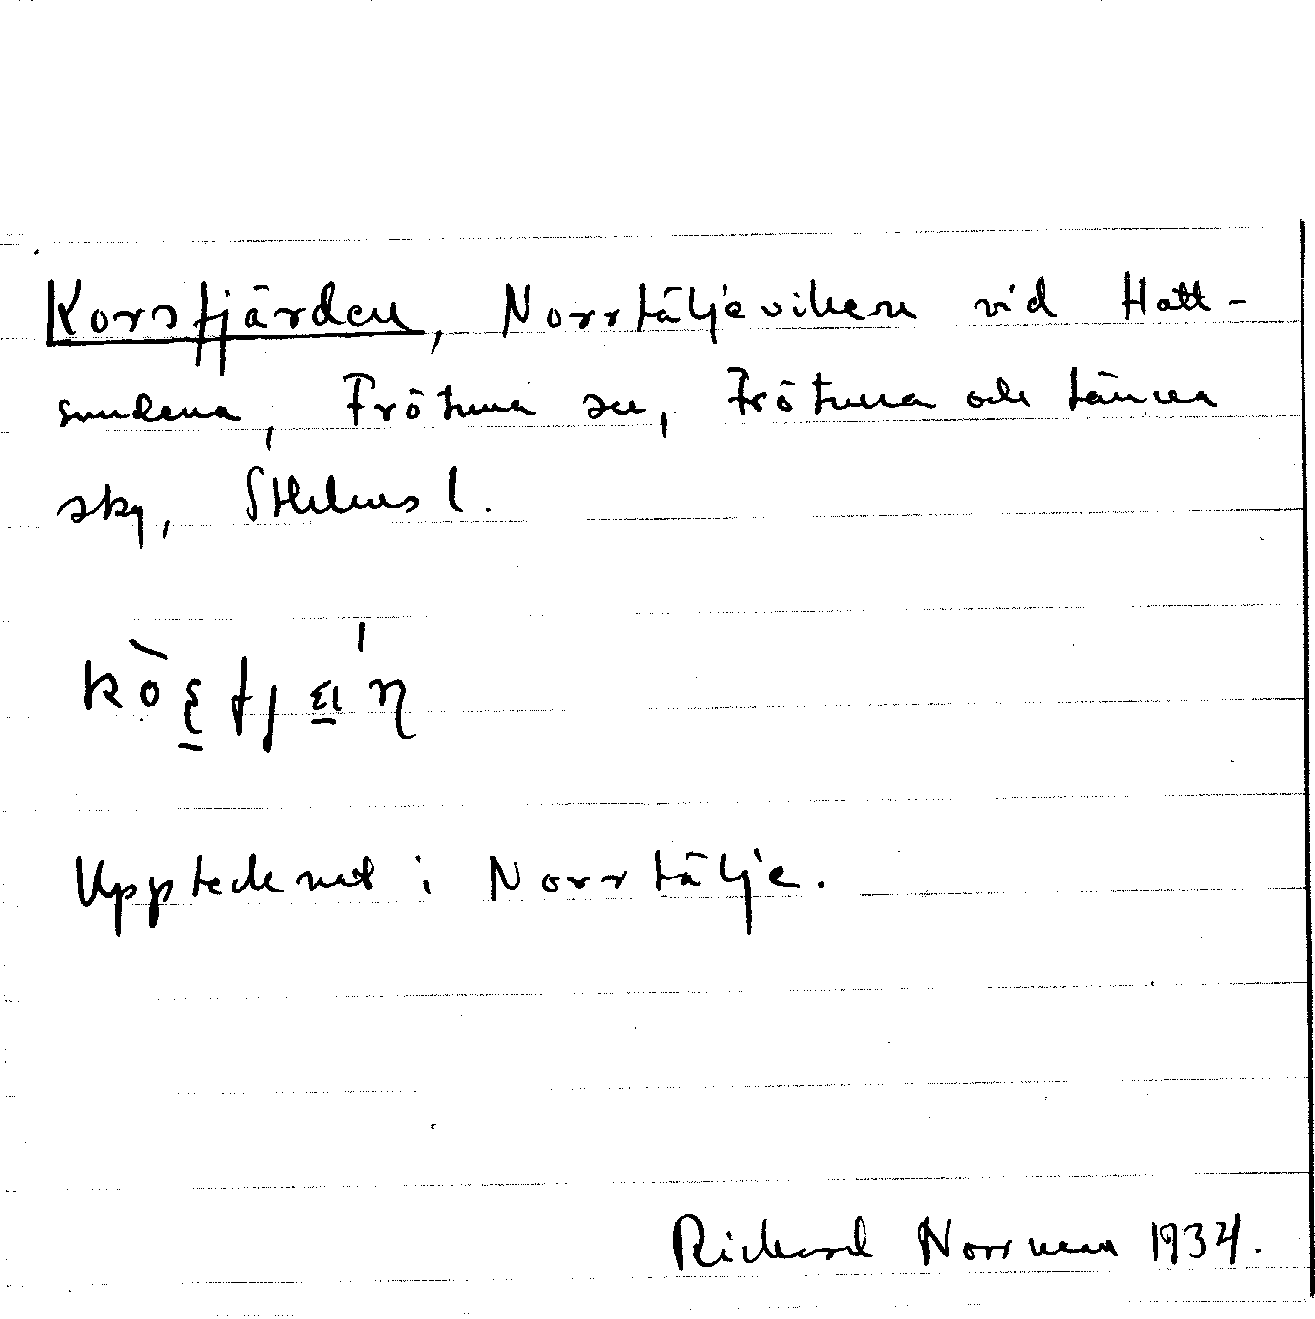 Korsfjärden, Norrtäljeviken vid Hatt-
sundena, Frötuna sn, Frötuna och Länna
sky, Sthlms l.
Upptecknat i Norrtälje.
Rickard Norrman 1934.